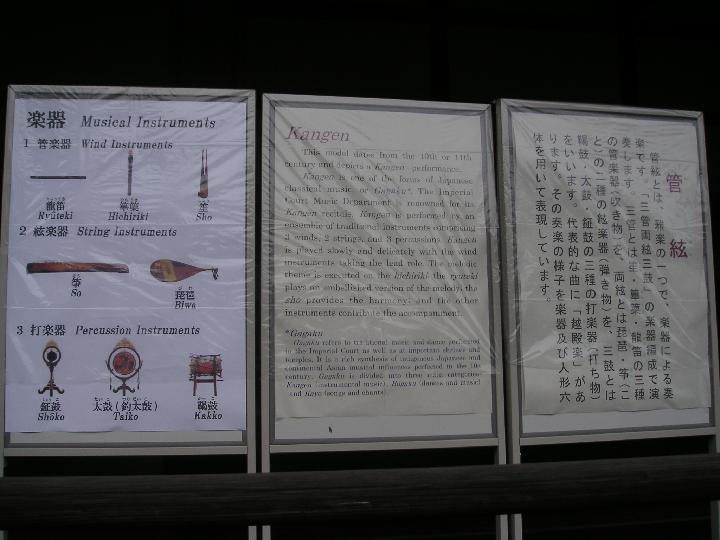 楽器 Musical Instruments
1 管楽器 Wind Instruments
龍笛 篳篥 笙
Ryūteki Hichiriki Sho
2 絃楽器 String Instruments
箏 琵琶
So Biwa
3 打楽器 Percussion Instruments
鉦鼓 太鼓(釣太鼓) 鞨鼓
Shōko Taiko Kakko
Kangen
This model dates from the 10th or 11th
century and depicts a Kangen performance.
Kangen is one of the forms of Japanese
classical music or Gagaku*. The Imperial
Court Music Department is renowned for its
Kangen recitals. Kangen is performed by an
ensemble of traditional instruments comprising
3 winds, 2 strings, and 3 percussions. Kangen
is played slowly and delicately with the wind
instruments taking the lead role. The melodic
theme is executed on the hichiriki, the ryuteki
plays an embellished version of the melody, the
sho provides the harmony, and the other
instruments contribute the accompaniment.
*Gagaku
Gagaku refers to traditional music and dance performed
in the Imperial Court as well as at important shrines and
temples. It is a rich synthesis of indigenous Japanese and
continental Asian musical influences perfected in the 10th
century. Gagaku is divided into three main categories:
Kangen (instrumental music), Bugaku (dances and music)
and Kayo (songs and chants).
管絃
管絃とは、雅楽の一つで、楽器による奏
楽です。「三管両絃三鼓」の楽器編成で演
奏します。三管とは笙・篳篥・龍笛の三種
の管楽器(吹き物)を、両絃とは琵琶・箏(こ
と)の二種の絃楽器(弾き物)を、三鼓とは
鞨鼓・太鼓・鉦鼓の三種の打楽器(打ち物)
をいいます。代表的な曲に「越殿楽」があ
ります。その奏楽の様子を楽器及び人形六
体を用いて表現しています。